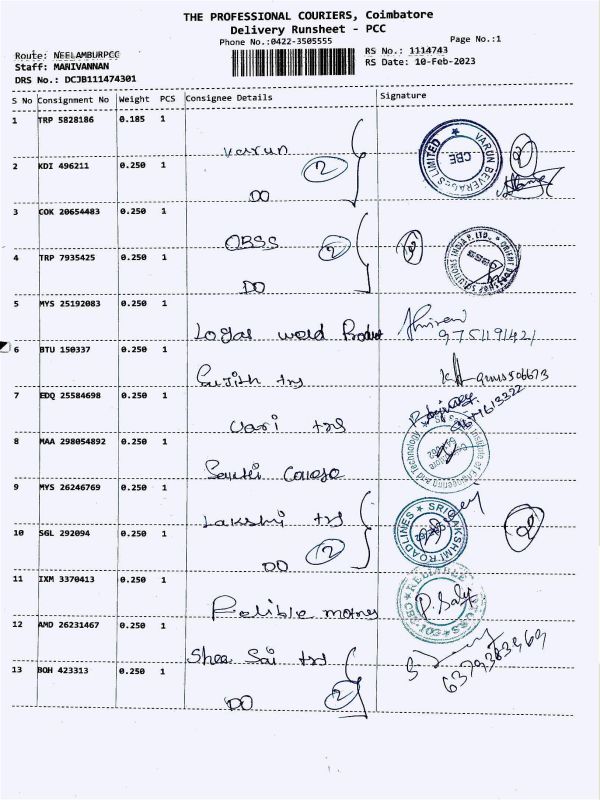 THE PROFESSIONAL COURIERS, Coimbatore
Delivery Runsheet - PCC
Phone No.:0422-3505555
Page No.:1
Route: NEELAMBURPCC
RS No.: 1114743
Staff: MANIVANNAN
RS Date: 10-Feb-2023
DRS No.: DCJB111474301
S No Consignment No Weight PCS Consignee Details Signature
1 TRP 5828186 0.185 1
Varun
VARUN BEVERAGES LIMITED CBE
2 KDI 496211 0.250 1
2
DO
3 COK 20654483 0.250 1
OBSS 2
4 TRP 7935425 0.250 1
DO
5 MYS 25192083 0.250 1
Logas weld Product
9751191421
6 BTU 150337 0.250 1
Sujith trs
7 EDQ 25584698 0.250 1
Vari trs
8 MAA 298054892 0.250 1
Institute of Engineering and Technology
9 MYS 26246769 0.250 1
Lakshi trs
SRI LAKSHMI ROADLINES
10 SGL 292094 0.250 1
DO 2
11 IXM 3370413 0.250 1
Relible motors
12 AMD 26231467 0.250 1
Shea Sai trs
6379383969
13 BOH 423313 0.250 1
DO 2